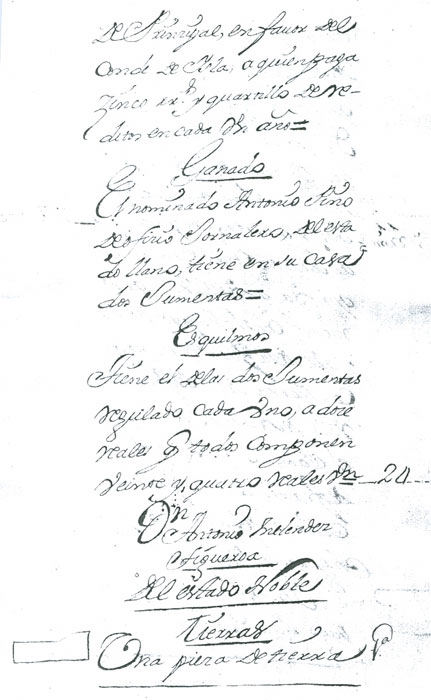 de Prinzipal, en favor del
Conde de Isla, a quien paga
Zinco rr.^s y quartillo de re-
ditos en cada Un año=
Ganado
El nominado Antonio Pino
de ofizio Jornalero, del esta
do llano, tiene en su casa
dos Jumentas=
Esquilmos
Tiene el de las dos Jumentas
regulado cada Uno, a doze
reales q̃ todos componen
Veinte y quatro reales Vn 24
Dn
Antonio Melendez
Figueroa
del estado Noble
Tierras
Una pieza de tierra